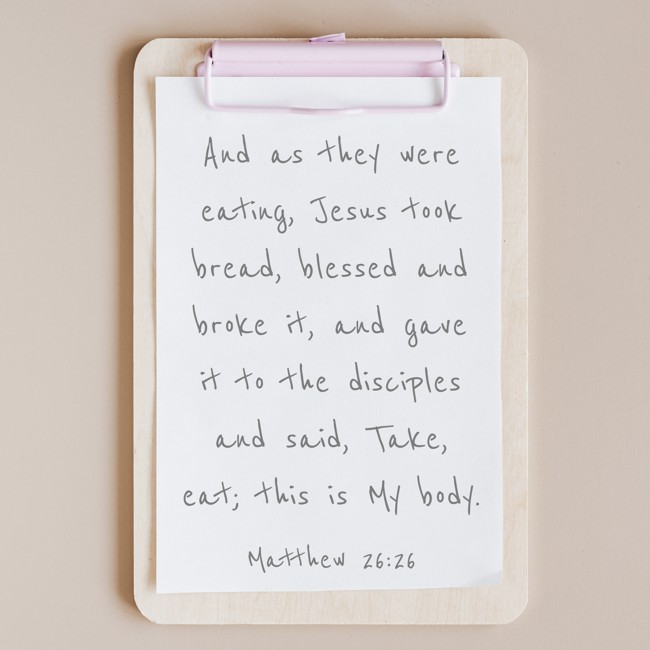 And as they were
eating, Jesus took
bread, blessed and
broke it, and gave
it to the disciples
and said, Take,
eat; this is My body.
Matthew 26:26